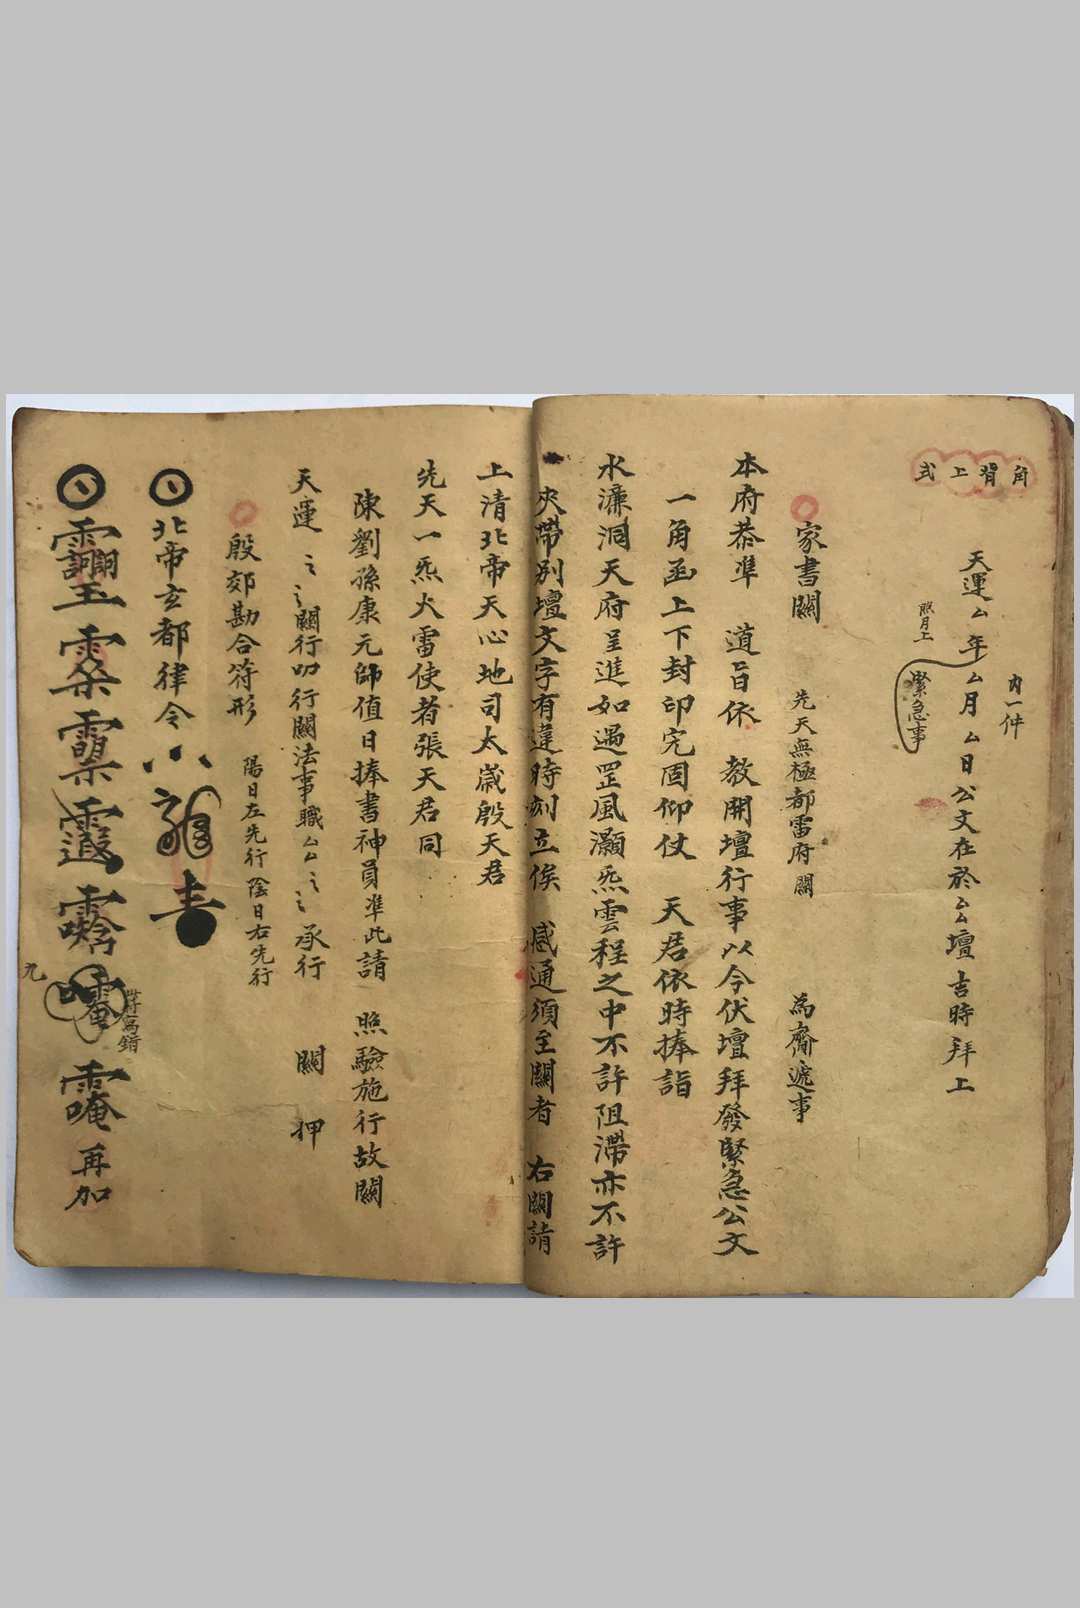 角背上式
內一件
天運厶年厶月厶日公文在於厶厶壇吉時拜上
照月上
緊急事
家書關 先天無極都雷府關 為齎遞事
本府恭準 道旨依 教開壇行事以今伏壇拜發緊急公文
一角函上下封印完固仰仗 天君依時捧詣
水濂洞天府呈進如遇罡風灝炁雲程之中不許阻滯亦不許
夾帶別壇文字有違時刻立俟 感通須至關者 右關請
上清北帝天心地司太歲殷天君
先天一炁火雷使者張天君同
陳劉孫康元帥值日捧書神員準此請 照驗施行故關
天運 關行叨行關法事職厶厶 承行 關 押
殷郊勘合符形 陽日左先行陰日右先行
北帝玄都律令
再加
九